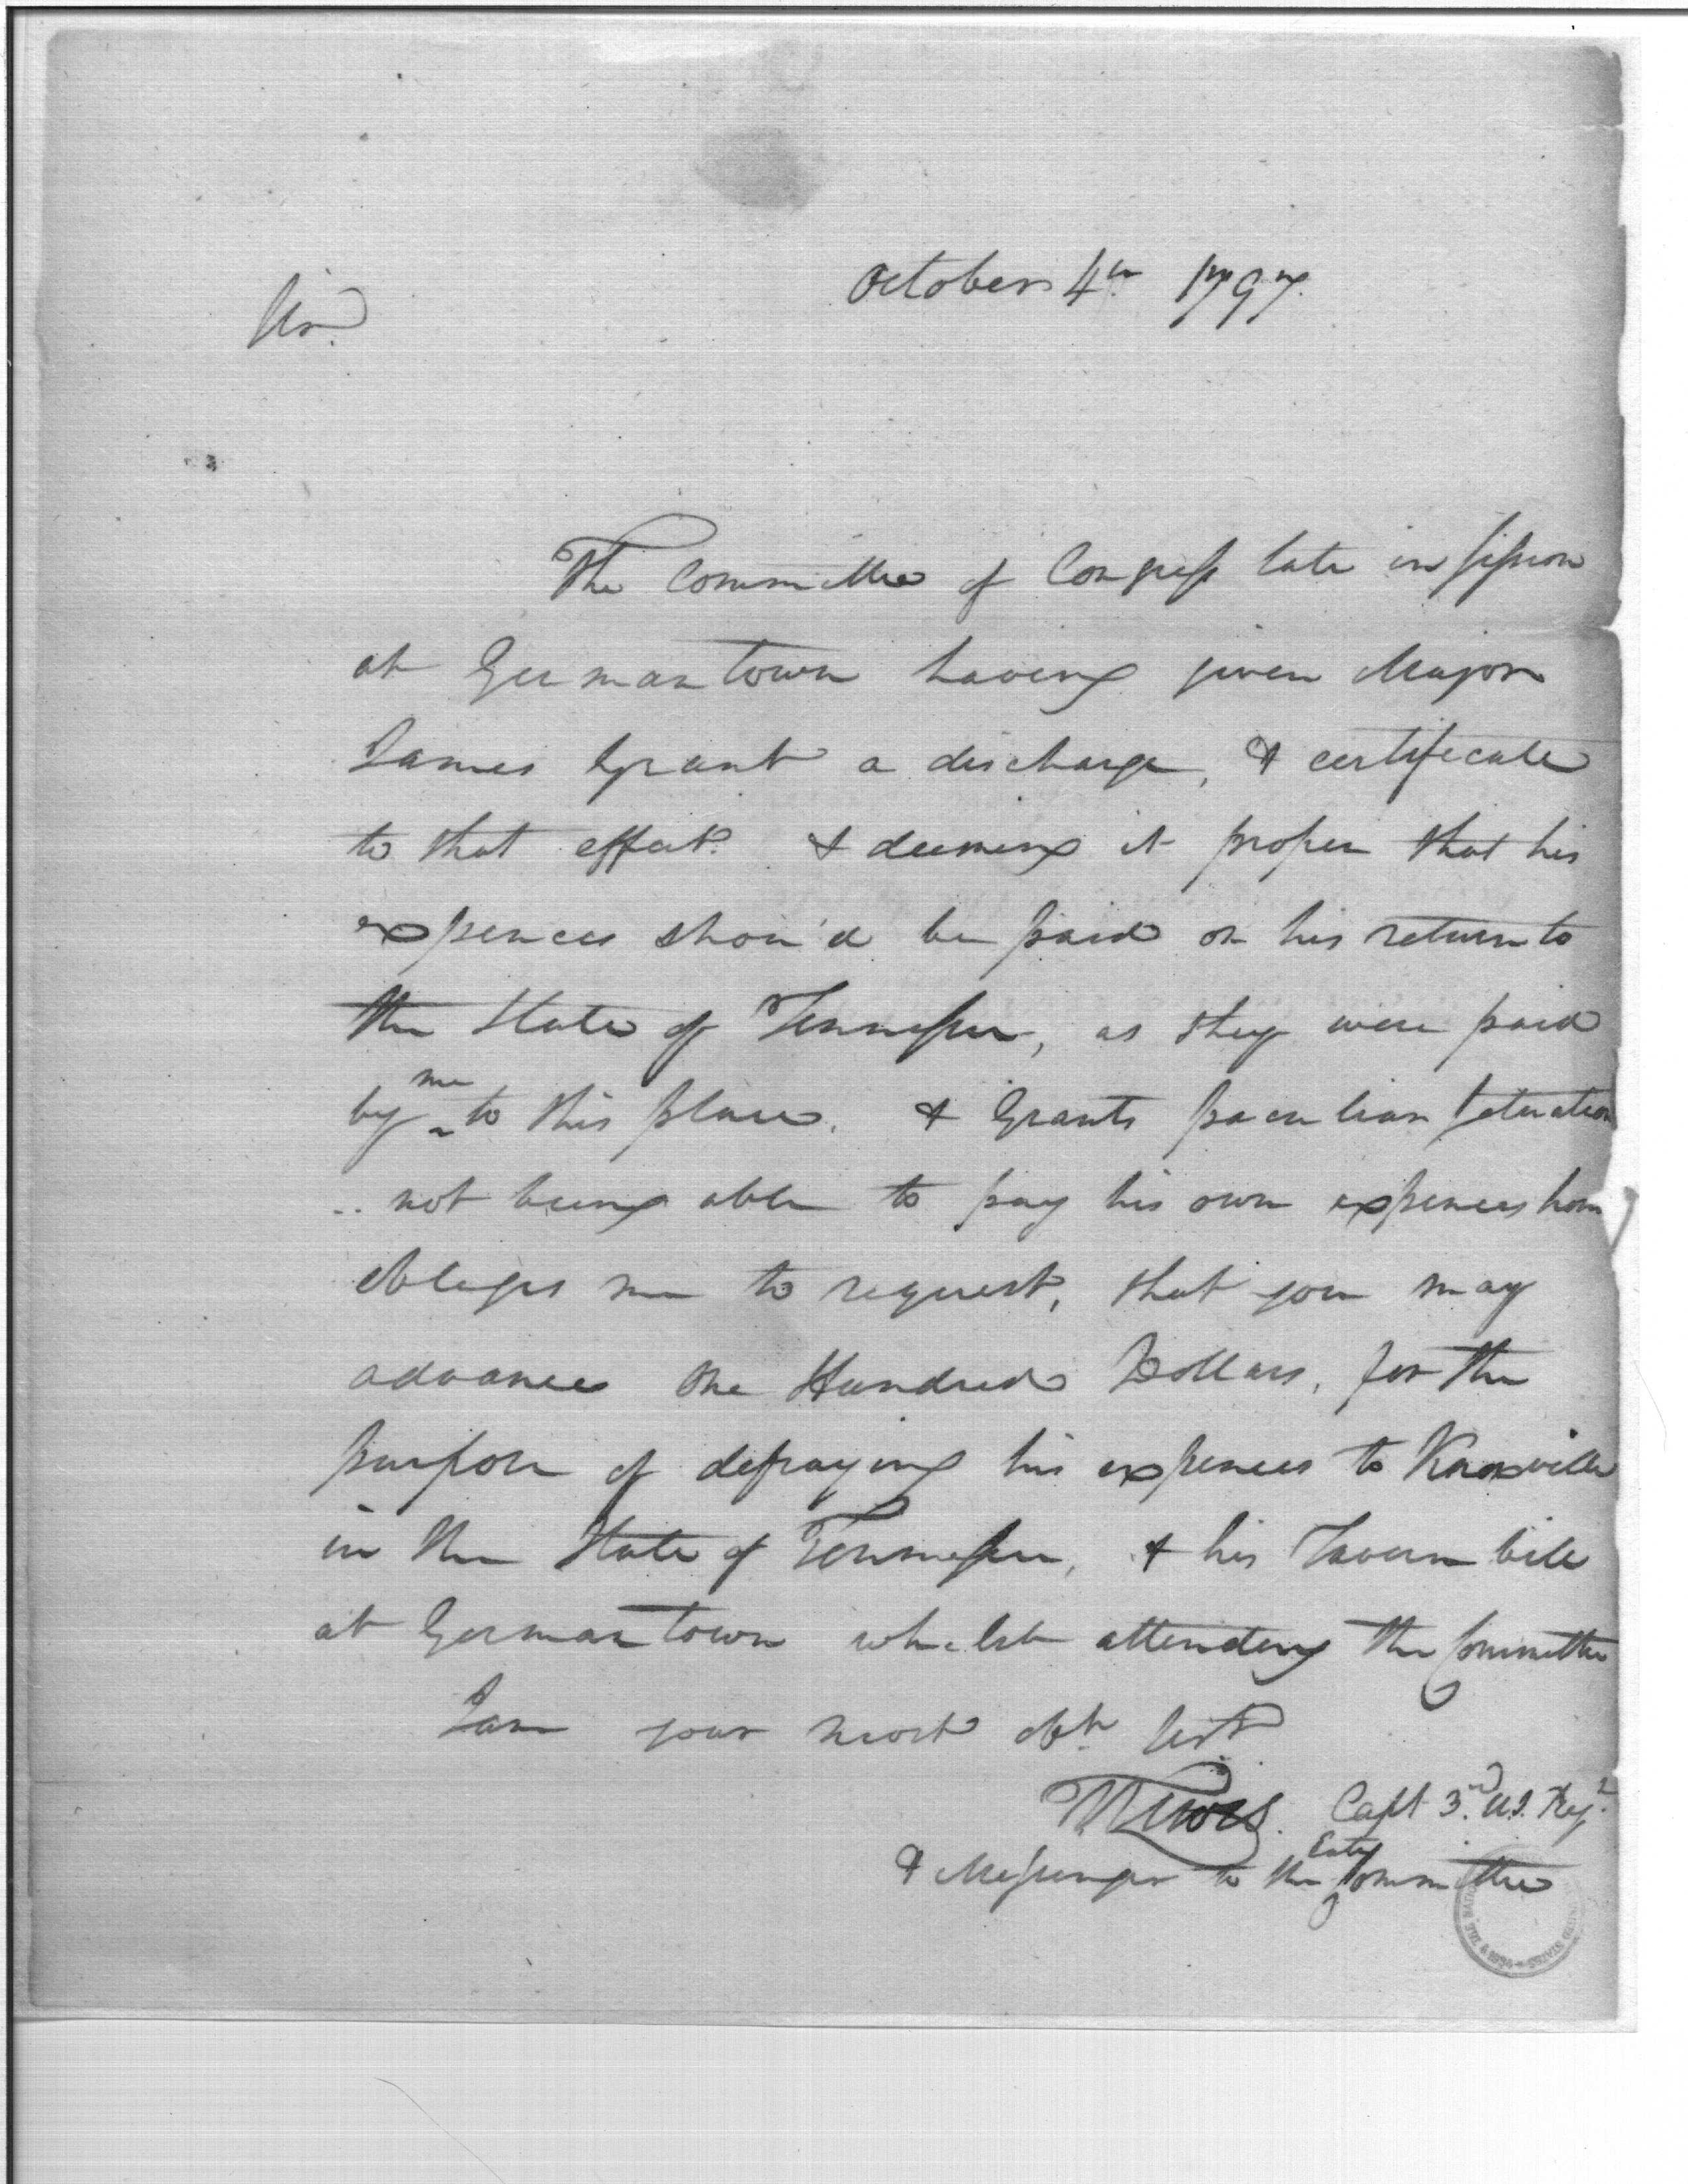 October 4th 1797.
Sir.
The Committee of Congress late in session
at Germantown having given Major
James Grant a discharge, & certificate
to that effect. & deeming it proper that his
expences shou'd be paid on his return to
the State of Tennessee, as they were paid
me
by to this place. & Grants peculiar situation
not being able to pay his own expences home
obliges me to request, that you may
advance One Hundred Dollars, for the
purpose of defraying his expences to Knoxville
in the State of Tennessee, & his Tavern bill
at Germantown whilst attending the Committee
I am your most obt. Sert.
Capt 3rd U.S. Regt.
& Messenger to the Committee